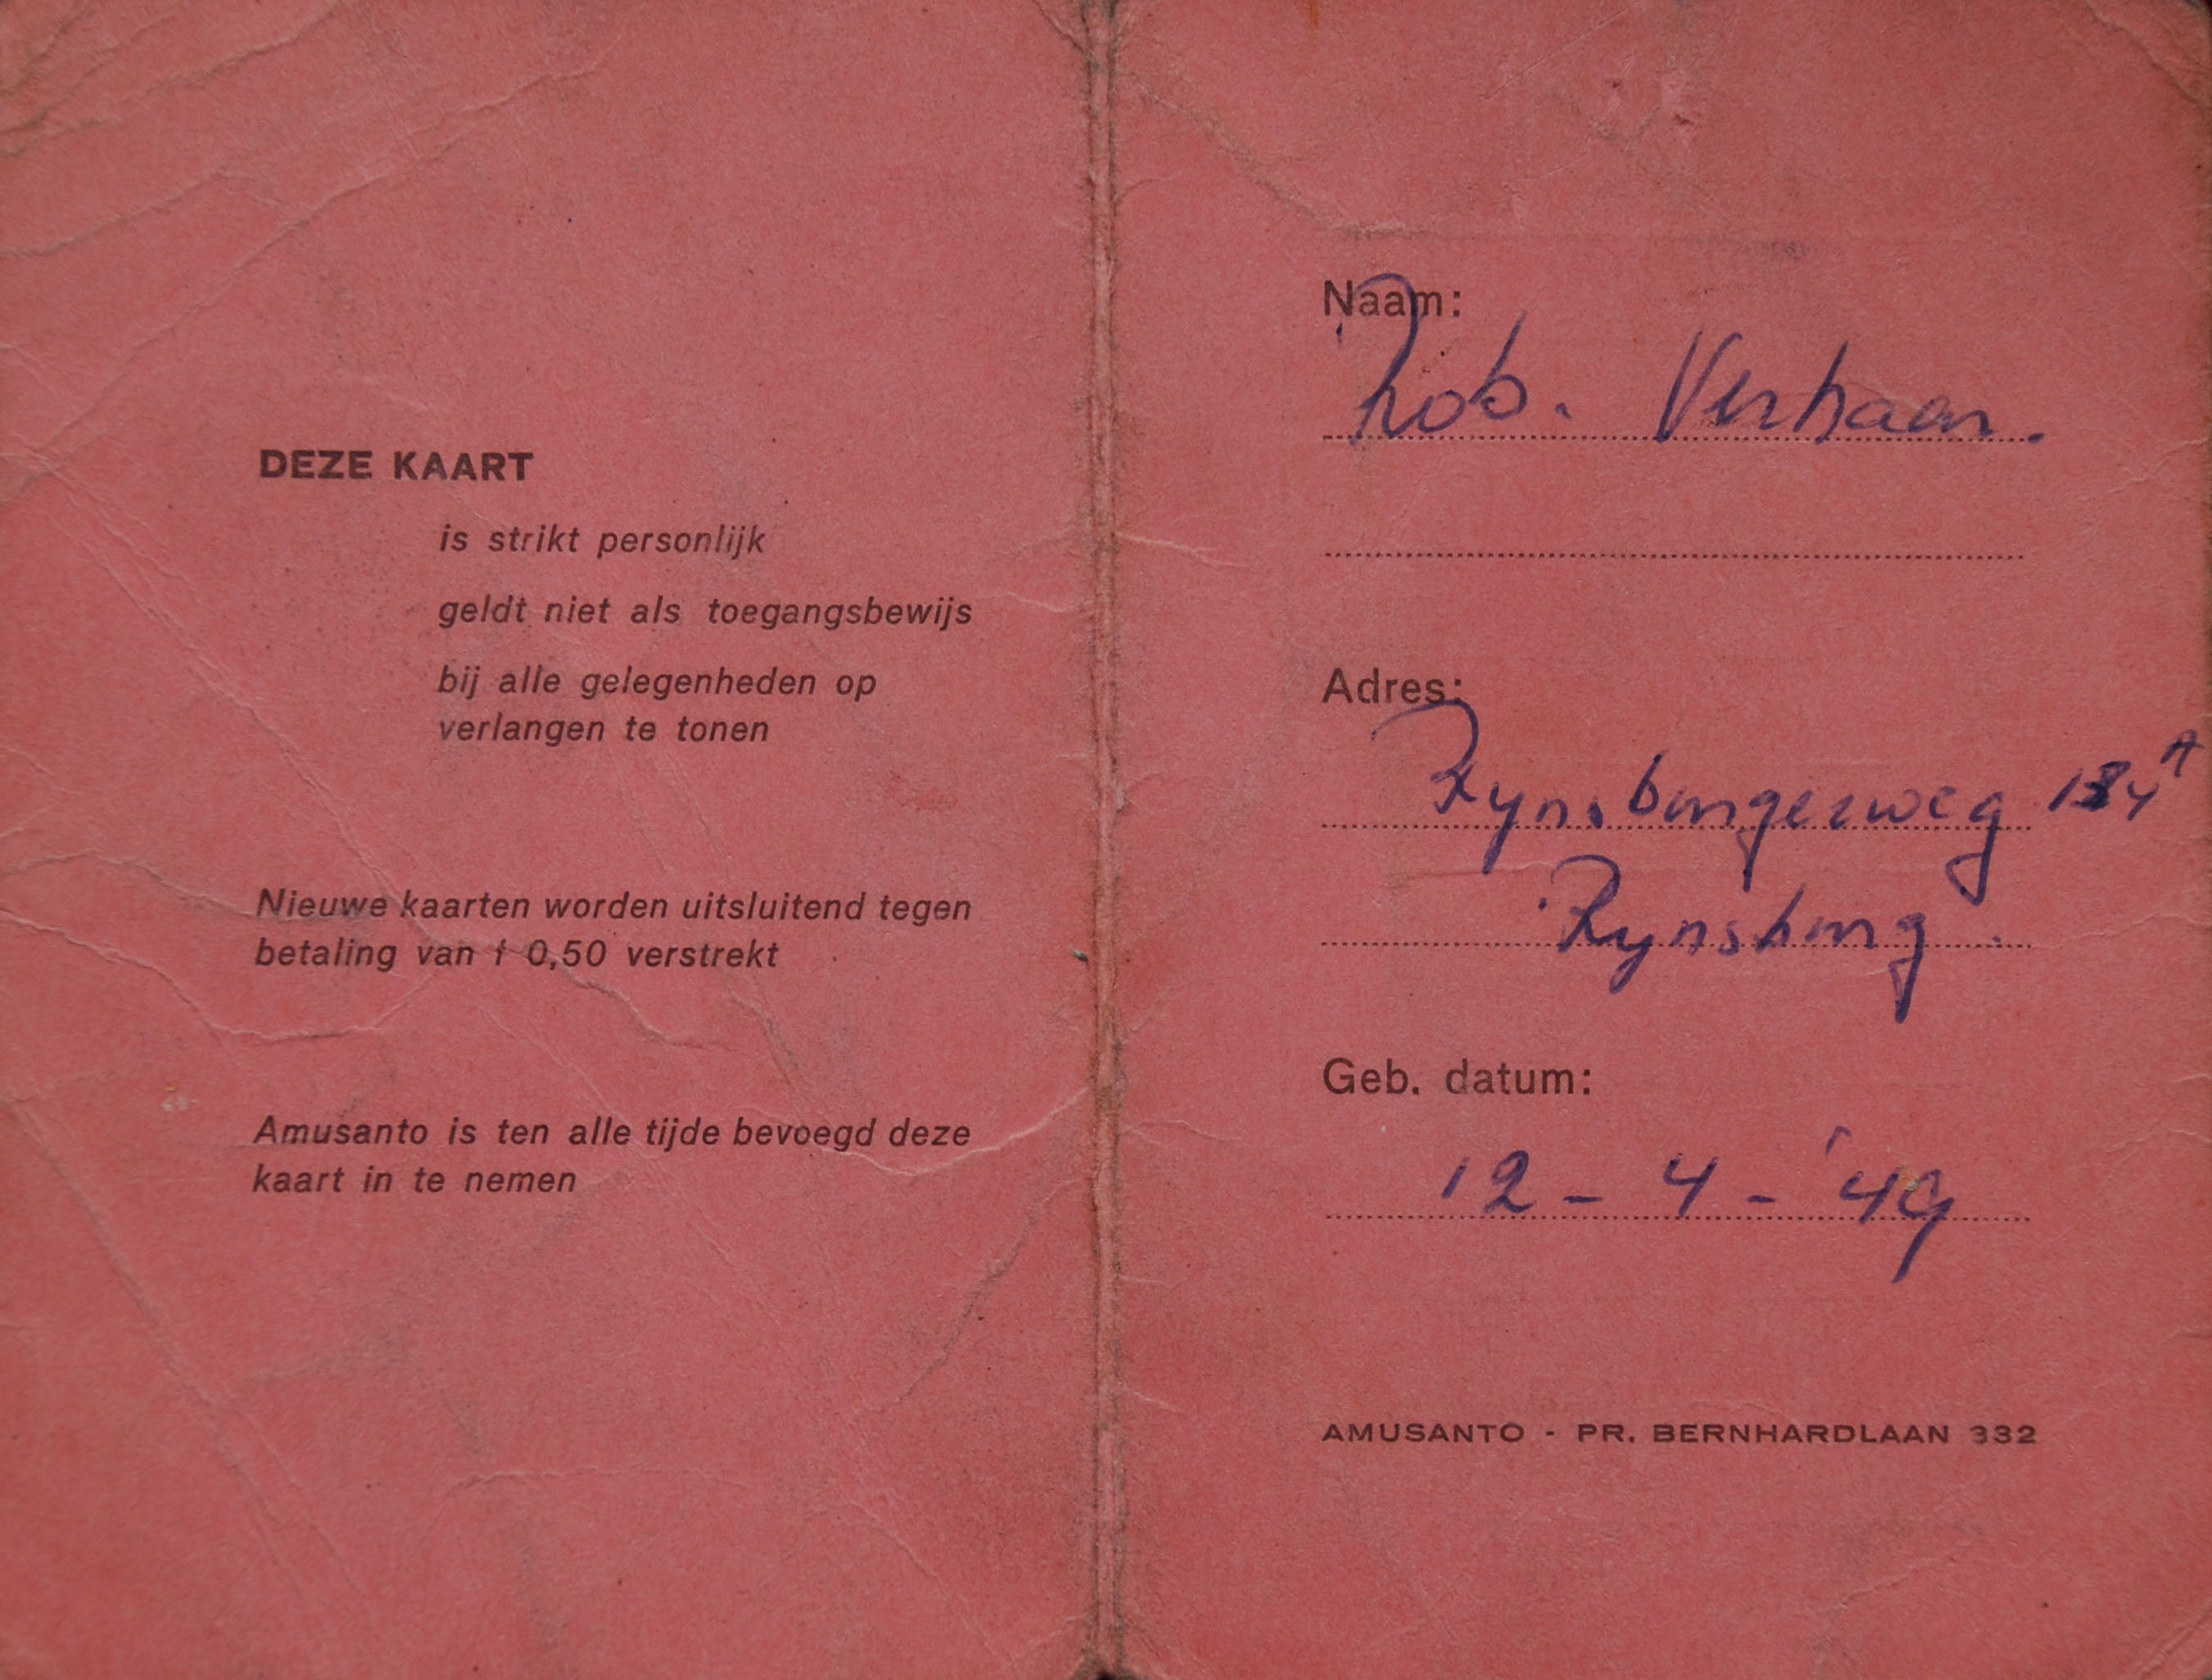 DEZE KAART
is strikt personlijk
geldt niet als toegangsbewijs
bij alle gelegenheden op
verlangen te tonen
Nieuwe kaarten worden uitsluitend tegen
betaling van f 0,50 verstrekt
Amusanto is ten alle tijde bevoegd deze
kaart in te nemen
Naam:
Rob. Verhaar.
Adres:
Rynsburgerweg
Rynsburg.
Geb. datum:
12 - 4 - '49
AMUSANTO - PR. BERNHARDLAAN 332